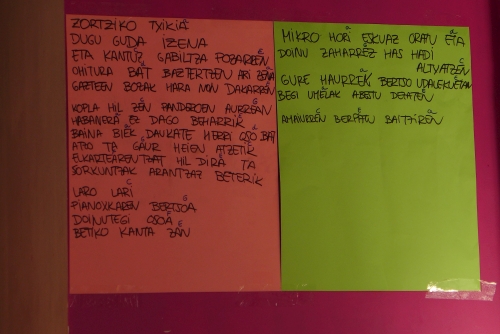 ZORTZIKO TXIKIA
DUGU GUDA IZENA
ETA KANTUZ GABILTZA POZARREN
OHITURA BAT BAZTERTZEN ARI ZENA
GAZTEEN BOZAK HARA NON DAKARREN
KOPLA HIL ZEN PANDEROEN AURREAN
HABANERA EZ DAGO BEHARRIK
BAINA BIEK DAUKATE HERRI OSO BAT
ATZO TA GAUR HEIEN ATZETIK
EUKARTEARENTZAT HIL DIRA TA
SORKUNTZAK ARANTZAZ BETERIK
LARO LARI
PIANOXKAREN BERTSOA
DOINUTEGI OSOA
BETIKO KANTA ZAN
MIKRO HORI ESKUAZ ORAN ETA
DOINU ZAHARREZ HAS HADI
ALTXATZEN
GURE HAURREN BERTSO UDALEKUETAN
BEGI UMELAK ABESTU DEZATEN
AMAURREN BERPIZTU BAITZIREN